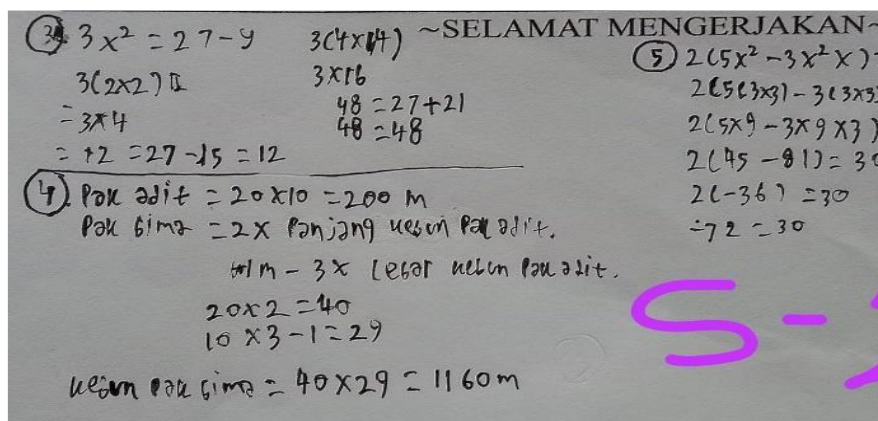 ~SELAMAT MENGERJAKAN~
3. 3x² = 27 - y
3(2x2)
= 3x4
= 12 = 27 - 15 = 12
3(4x4)
3x16
48 = 27 + 21
48 = 48
5 2(5x² - 3x² x)
2(5(3x3) - 3(3x3
2(5x9 - 3x9x3)
2(45 - 81) = 30
2(-36) = 30
-72 = 30
4). Pak adit = 20x10 = 200 m
Pak bima = 2x Panjang kebun Pak adit.
1m - 3x lebar kebun Pak adit.
20x2 = 40
10 x3 - 1 = 29
kebun pak bima = 40x29 = 1160m
S-